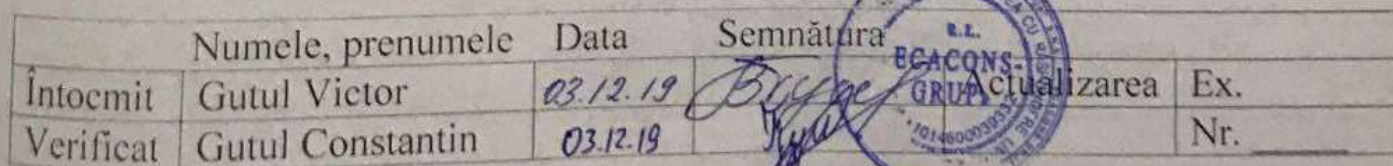 Numele, prenumele Data Semnătura
Întocmit Gutul Victor 03.12.19 Actualizarea Ex.
Verificat Gutul Constantin 03.12.19 Nr.
R.L.
EGACONS-
GRUP